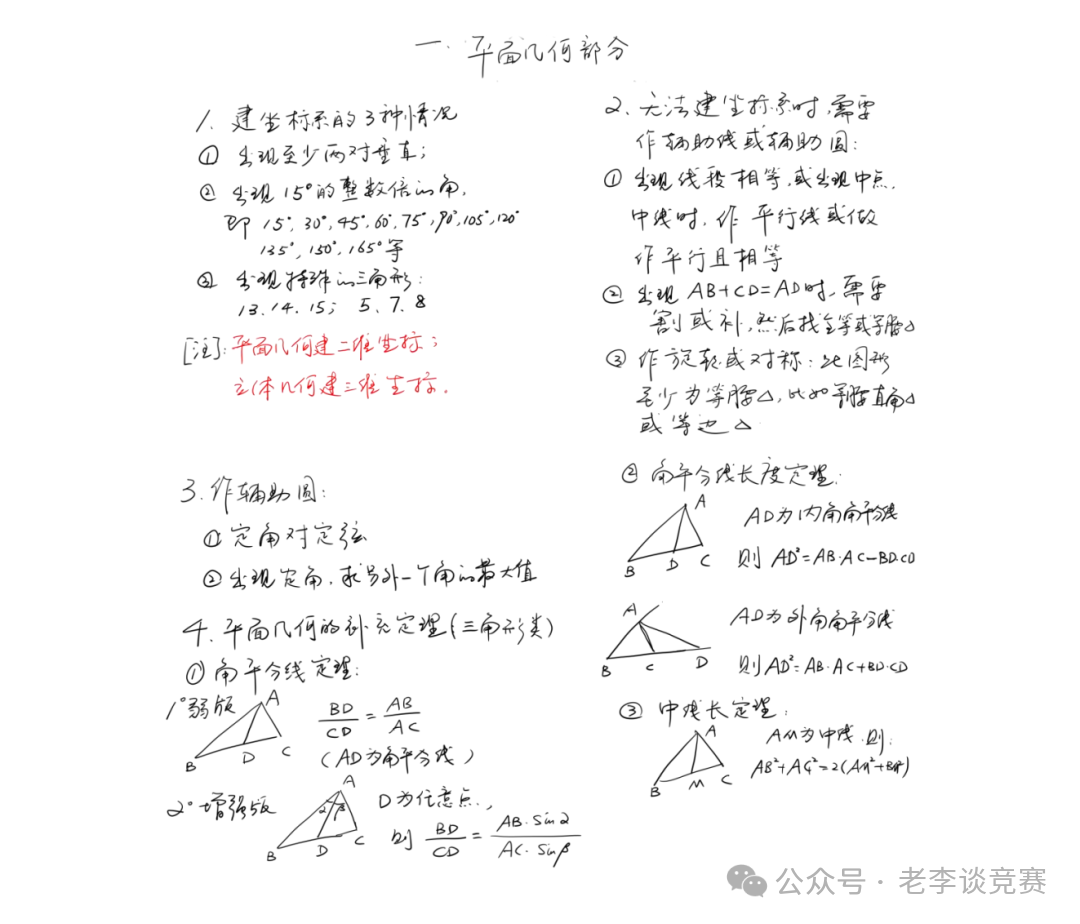 一. 平面几何部分
1. 建坐标系的3种情况
① 出现至少两对垂直;
② 出现15°的整数倍的角,
即 15°, 30°, 45°, 60°, 75°, 90°, 105°, 120°
135°, 150°, 165°等
③ 出现特殊的三角形:
13. 14. 15; 5. 7. 8
[注]: 平面几何建二维坐标;
立体几何建三维坐标.
2. 无法建坐标系时, 需要
作辅助线或辅助圆:
① 出现线段相等, 或出现中点.
中线时, 作平行线或做
作平行且相等
② 出现 AB+CD=AD时, 需要
割或补, 然后找全等或等腰△
③ 作旋转或对称: 此图形
至少为等腰△, 比如等腰直角△
或等边△
3. 作辅助圆:
① 定角对定弦
② 出现定角, 求另外一个角的最大值
4. 平面几何的补充定理(三角形类)
① 角平分线定理:
1°弱版
A
B
D
C
BD/CD = AB/AC
(AD为角平分线)
2°增强版
A
α
β
B
D
C
D为任意点,
则 BD/CD = AB·Sinα/AC·Sinβ
② 角平分线长度定理:
A
B
D
C
AD为内角角平分线
则 AD²=AB·AC-BD·CD
A
B
C
D
AD为外角角平分线
则AD²=AB·AC+BD·CD
③ 中线长定理:
A
B
M
C
AM为中线, 则:
AB²+AC²=2(AM²+BM²)
公众号 · 老李谈竞赛